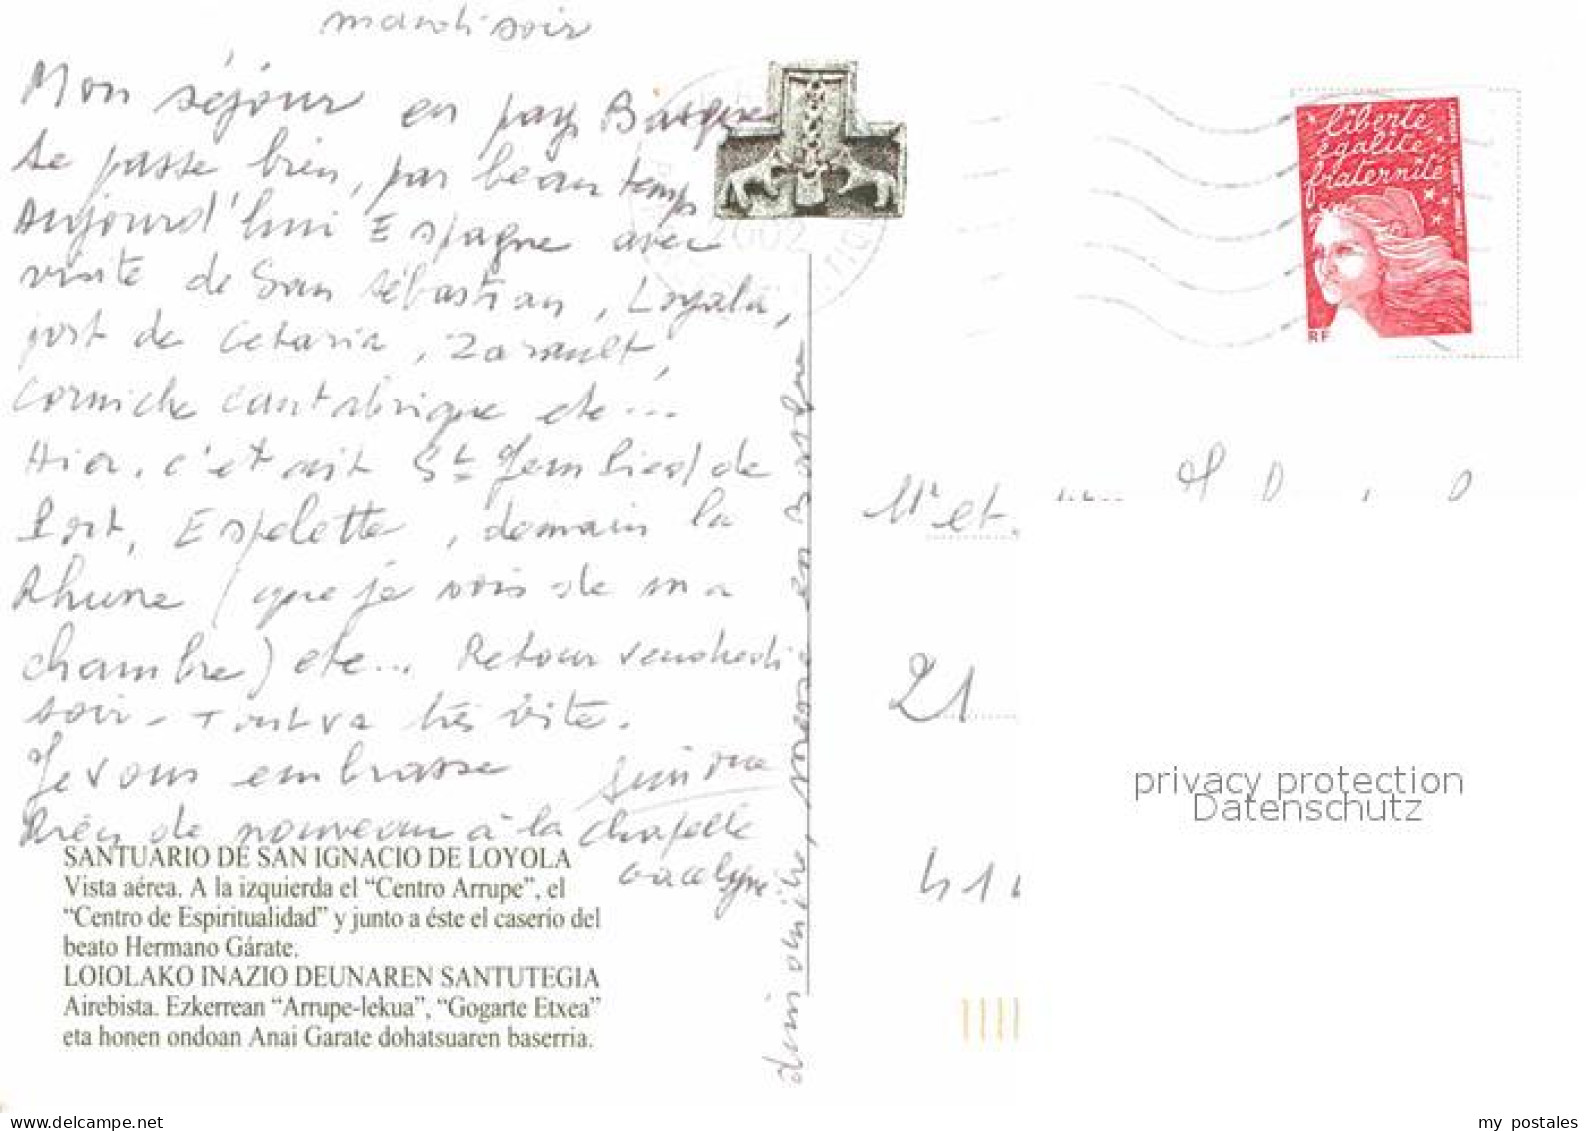 mardi soir
Mon séjour en pays Basque
se passe bien, par beau temps
Aujourd'hui Espagne avec
visite de San Sébastian, Loyala,
port de Getaria, Zarault,
Corniche cantabrique etc...
Hier, c'était St Jean Pied de
Port, Espelette, demain la
Rhune (que je vois de ma
chambre) etc... Retour vendredi
soir - Tout va très vite.
Je vous embrasse
Simone
de nouveau à la chapelle
messe en basque
SANTUARIO DE SAN IGNACIO DE LOYOLA
Vista aérea. A la izquierda el “Centro Arrupe”, el
“Centro de Espiritualidad” y junto a éste el caserío del
beato Hermano Gárate.
LOIOLAKO INAZIO DEUNAREN SANTUTEGIA
Airebista. Ezkerrean “Arrupe-lekua”, “Gogarte Etxea”
eta honen ondoan Anai Garate dohatsuaren baserria.
2002
liberté
égalité
fraternité
RF
Mr et
21
41
privacy protection
Datenschutz
delcampe.net
my_postales